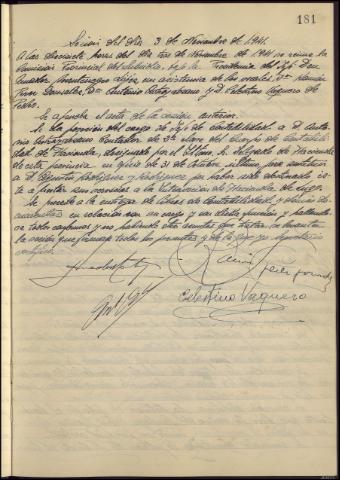 181
Sesión del día 3 de Noviembre de 1941.
A las diecisiete horas del día tres de Noviembre de 1941 se reúne la
Comisión Provincial del Subsidio, bajo la Presidencia del Sr. Don
Amador con asistencia de los vocales, Dn. Ramón
González, Dn. Antonio y D. Celestino Vaquero de
Pedro.
Se aprueba el acta de la sesión anterior.
Se da posesión del cargo de Jefe de Contabilidad a D. Anto-
nio Contador de 3ª clase del Cuerpo de Contabili-
dad de Hacienda, designado por el Iltmo. Sr. Delegado de Hacienda
de esta provincia en oficio de 31 de Octubre último, para sustituir
a D. Rodríguez y Rodríguez por haber sido destinado és-
te a prestar sus servicios a la Delegación de Hacienda de Lugo.
Se procede a la entrega de libros de Contabilidad y demás do-
cumentos en relación con su cargo y
se todos conformes y no habiendo otro asunto que tratar, se levanta
la sesión que firman todos los presentes y de la que yo Secretario
certifico.
Celestino Vaquero